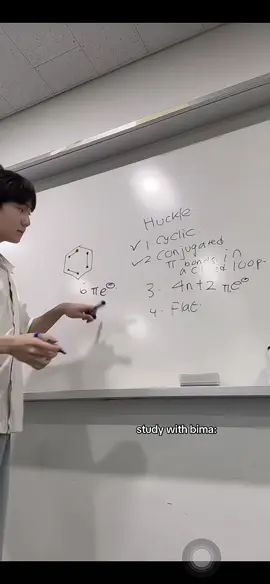 Huckle
✓ 1. cyclic
✓ 2 conjugated
π bonds in
a closed loop.
3. 4n+2 πe⊖
4. Flat.
6 πe⊖
study with bima: